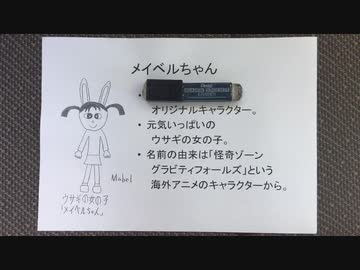 メイベルちゃん
オリジナルキャラクター。
・元気いっぱいの
ウサギの女の子。
・名前の由来は「怪奇ゾーン
グラビティフォールズ」という
海外アニメのキャラクターから。
Mabel
ウサギの女の子
「メイベルちゃん」